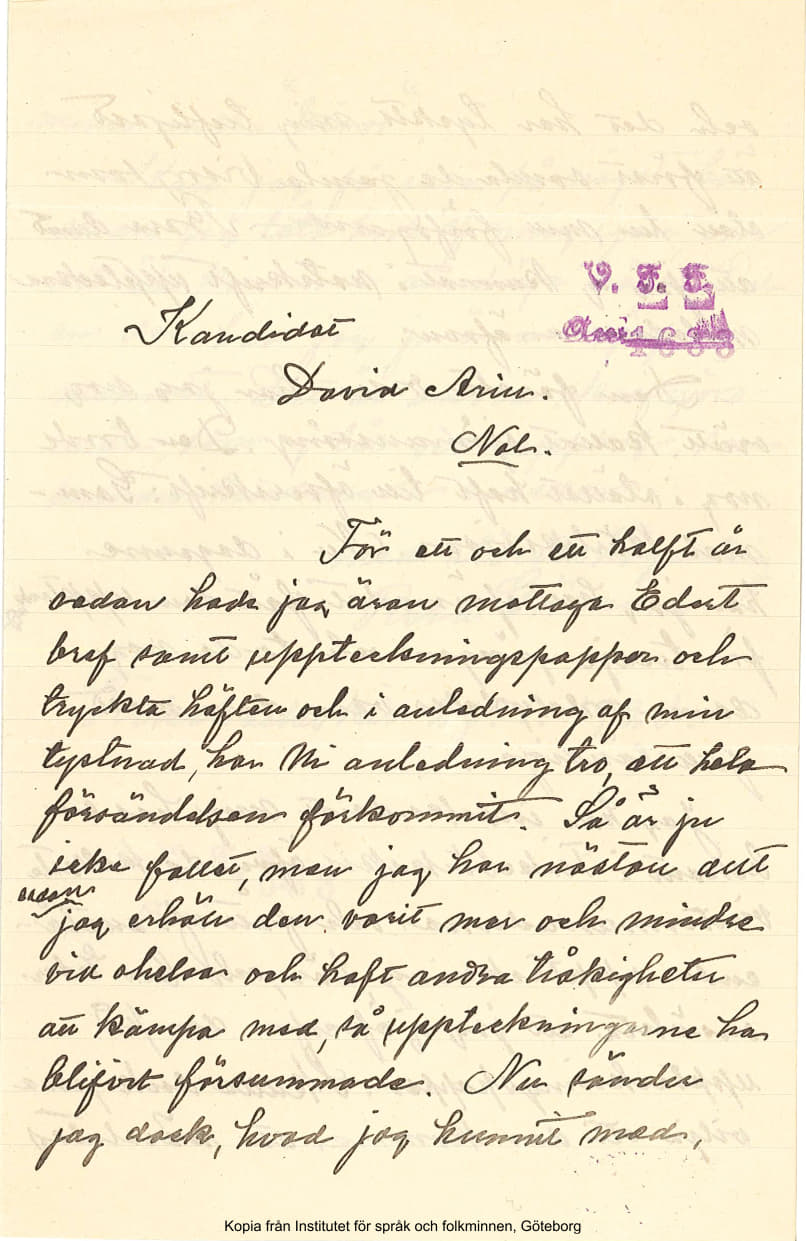 V. F. F.
Acc. 1633
Kandidat
David Arill.
Nol.
För ett och ett halft år
sedan hade jag äran mottaga Edert
bref samt uppteckningspapper och
tryckta häften och i anledning af min
tystnad, har Ni anledning tro, att hela
försändelsen förkommit. Så är ju
icke fallet, men jag har nästan allt
sedan
jag erhöll den varit mer och mindre
vid ohelsa och haft andra tråkigheter
att kämpa med, så uppteckningarne ha
blifvit försummade. Nu sänder
jag dock, hvad jag hunnit med,
Kopia från Institutet för språk och folkminnen, Göteborg